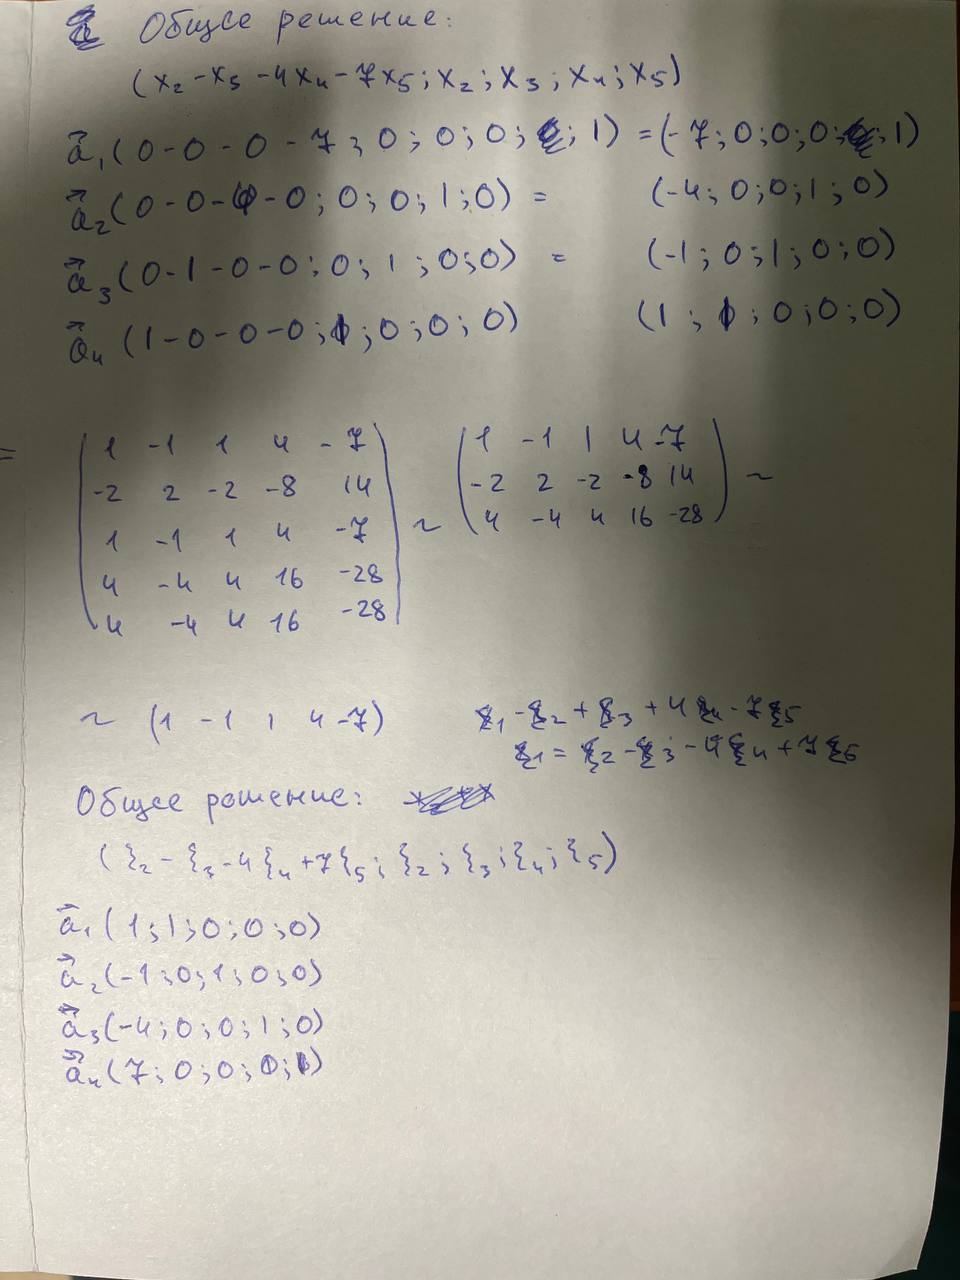 Общее решение:
(x₂ - x₃ - 4x₄ - 7x₅; x₂; x₃; x₄; x₅)
a⃗₁(0-0-0-7; 0; 0; 0; 1) = (-7; 0; 0; 0; 1)
a⃗₂(0-0-0-0; 0; 0; 1; 0) = (-4; 0; 0; 1; 0)
a⃗₃(0-1-0-0; 0; 1; 0; 0) = (-1; 0; 1; 0; 0)
a⃗₄(1-0-0-0; 1; 0; 0; 0) (1; 1; 0; 0; 0)
1 -1 1 4 -7 1 -1 1 4 -7
= -2 2 -2 -8 14 ~ -2 2 -2 -8 14 ~
1 -1 1 4 -7 4 -4 4 16 -28
4 -4 4 16 -28
4 -4 4 16 -28
~ (1 -1 1 4 -7) ξ₁ - ξ₂ + ξ₃ + 4ξ₄ - 7ξ₅
ξ₁ = ξ₂ - ξ₃ - 4ξ₄ + 7ξ₅
Общее решение:
(ξ₂ - ξ₃ - 4ξ₄ + 7ξ₅; ξ₂; ξ₃; ξ₄; ξ₅)
a⃗₁(1; 1; 0; 0; 0)
a⃗₂(-1; 0; 1; 0; 0)
a⃗₃(-4; 0; 0; 1; 0)
a⃗₄(7; 0; 0; 0; 1)